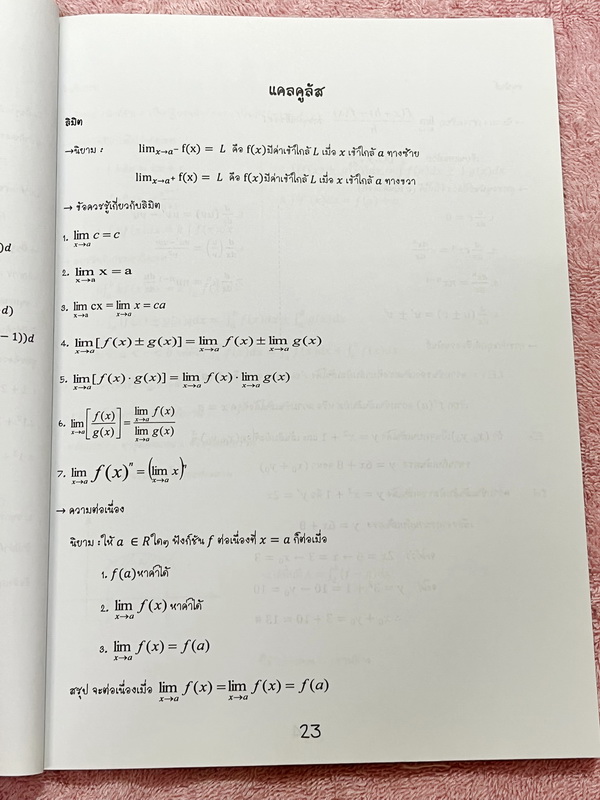 แคลคูลัส
ลิมิต
→นิยาม : limₓ→ₐ- f(x) = L คือ f(x)มีค่าเข้าใกล้ L เมื่อ x เข้าใกล้ a ทางซ้าย
limₓ→ₐ+ f(x) = L คือ f(x)มีค่าเข้าใกล้ L เมื่อ x เข้าใกล้ a ทางขวา
→ ข้อควรรู้เกี่ยวกับลิมิต
1. lim x→a c = c
2. lim x→a x = a
)d
3. lim x→a cx = lim x→a x = ca
d)
4. lim x→a [f(x) ± g(x)] = lim x→a f(x) ± lim x→a g(x)
− 1))d
5. lim x→a [f(x) · g(x)] = lim x→a f(x) · lim x→a g(x)
6. lim x→a [f(x)/g(x)] = lim x→a f(x) / lim x→a g(x)
7. lim x→a f(x)ⁿ = (lim x→a x)ⁿ
→ ความต่อเนื่อง
นิยาม : ให้ a ∈ R ใดๆ ฟังก์ชัน f ต่อเนื่องที่ x = a ก็ต่อเมื่อ
1. f(a) หาค่าได้
2. lim x→a f(x) หาค่าได้
3. lim x→a f(x) = f(a)
สรุป จะต่อเนื่องเมื่อ lim x→a f(x) = lim x→a f(x) = f(a)
23